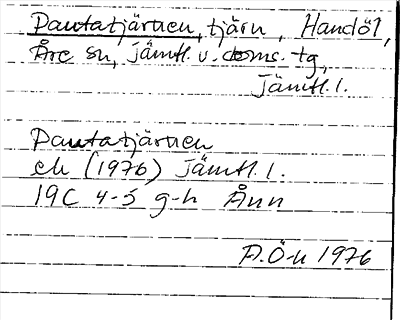 Pautatjärnen, tjärn, Handöl,
Åre sn, Jämtl. v. doms.-tg,
Jämtl. l.
Pautatjärnen
ek (1976) Jämtl. l.
19C 4-5 g-h Ånn
P.Ö-n 1976